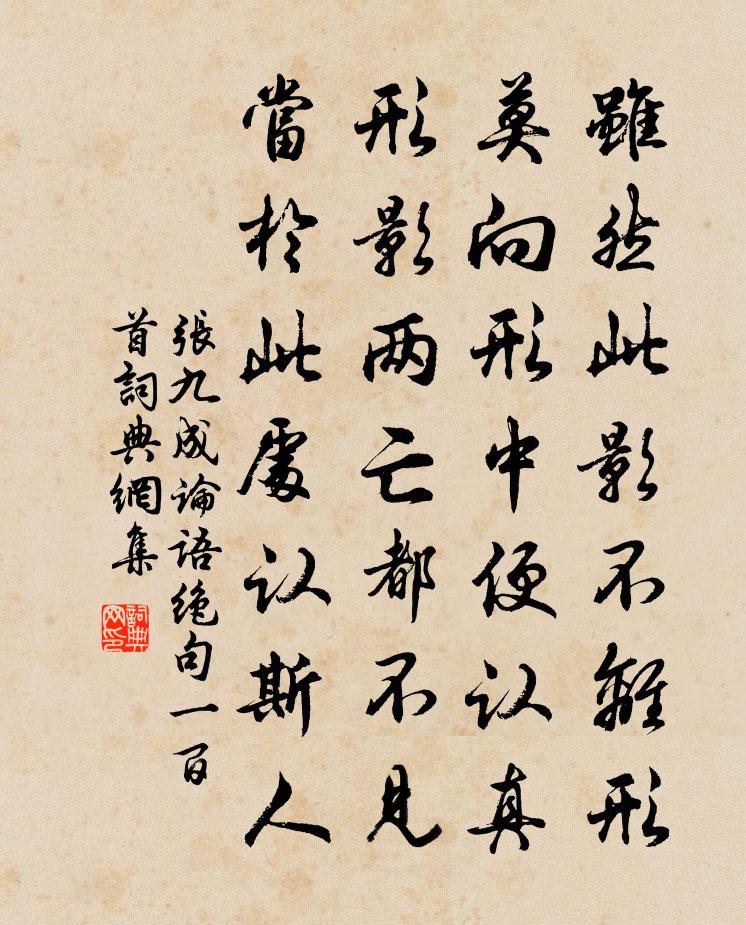 雖然此影不離形
莫向形中便认真
形影两亡都不見
當於此處认斯人
張九成论语绝句一百
首詞典網集
詞典网印